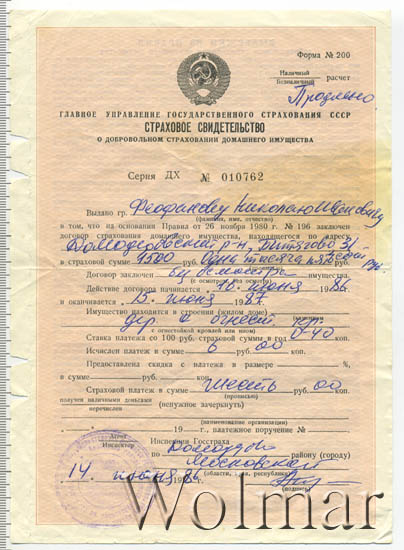 Форма № 200
Наличный
Безналичный расчет
Продлено
ГЛАВНОЕ УПРАВЛЕНИЕ ГОСУДАРСТВЕННОГО СТРАХОВАНИЯ СССР
СТРАХОВОЕ СВИДЕТЕЛЬСТВО
О ДОБРОВОЛЬНОМ СТРАХОВАНИИ ДОМАШНЕГО ИМУЩЕСТВА
Серия ДХ № 010762
Выдано гр. Феофанову Николаю Ивановичу
(фамилия, имя, отчество)
в том, что на основании Правил от 26 ноября 1980 г. № 196 заключен
договор страхования домашнего имущества, находящегося по адресу
Домодедовский р-н, Битягово 31
в страховой сумме 1500 Одна тысяча пятьсот руб.
Договор заключен без осмотра имущества.
(с осмотром, без осмотра)
Действие договора начинается 16 июня 1986
и оканчивается 15 июня 1987.
Имущество находится в строении (жилом доме)
дер. с огнест. кр.
с огнестойкой кровлей или нном)
Ставка платежа со 100 руб. страховой суммы в год 0-40
Исчислен платеж в сумме 6 руб. 00 коп.
Предоставлена скидка с платежа в размере %,
в сумме руб. коп.
Страховой платеж в сумме шесть руб. 00 коп.
(прописью)
получен наличными деньгами
перечислен (ненужное зачеркнуть)
19 г., платежное поручение №
(наименование организации)
Агент
Инспектор Инспекции Госстраха
по Домодедов району (городу)
Московской
(области, края, республики)
14 июня 1986
(подпись)
Wolmar